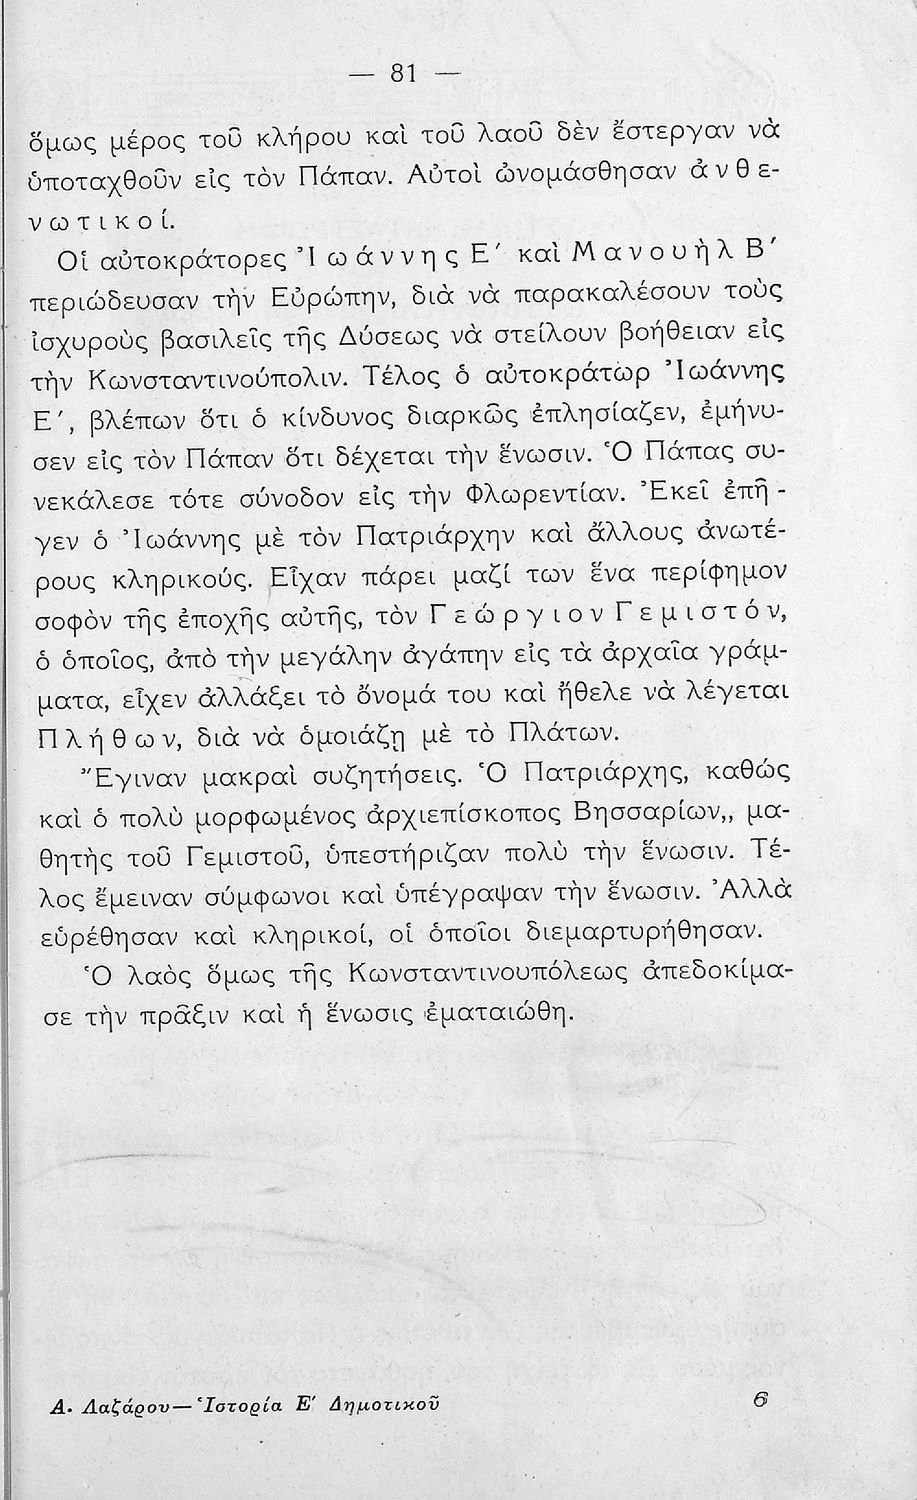 — 81 —
ὅμως μέρος τοῦ κλήρου καὶ τοῦ λαοῦ δὲν ἔστεργαν νὰ
ὑποταχθοῦν εἰς τὸν Πάπαν. Αὐτοὶ ὠνομάσθησαν ἀ ν θ ε-
ν ω τ ι κ ο ί.
Οἱ αὐτοκράτορες Ἰ ω ά ν ν η ς Ε΄ καὶ Μ α ν ο υ ὴ λ Β΄
περιώδευσαν τὴν Εὐρώπην, διὰ νὰ παρακαλέσουν τοὺς
ἰσχυροὺς βασιλεῖς τῆς Δύσεως νὰ στείλουν βοήθειαν εἰς
τὴν Κωνσταντινούπολιν. Τέλος ὁ αὐτοκράτωρ Ἰωάννης
Ε΄, βλέπων ὅτι ὁ κίνδυνος διαρκῶς ἐπλησίαζεν, ἐμήνυ-
σεν εἰς τὸν Πάπαν ὅτι δέχεται τὴν ἕνωσιν. Ὁ Πάπας συ-
νεκάλεσε τότε σύνοδον εἰς τὴν Φλωρεντίαν. Ἐκεῖ ἐπῆ -
γεν ὁ Ἰωάννης μὲ τὸν Πατριάρχην καὶ ἄλλους ἀνωτέ-
ρους κληρικούς. Εἶχαν πάρει μαζί των ἕνα περίφημον
σοφὸν τῆς ἐποχῆς αὐτῆς, τὸν Γ ε ώ ρ γ ι ο ν Γ ε μ ι σ τ ό ν,
ὁ ὁποῖος, ἀπὸ τὴν μεγάλην ἀγάπην εἰς τὰ ἀρχαῖα γράμ-
ματα, εἶχεν ἀλλάξει τὸ ὄνομά του καὶ ἤθελε νὰ λέγεται
Π λ ή θ ω ν, διὰ νὰ ὁμοιάζῃ μὲ τὸ Πλάτων.
Ἔγιναν μακραὶ συζητήσεις. Ὁ Πατριάρχης, καθώς
καὶ ὁ πολὺ μορφωμένος ἀρχιεπίσκοπος Βησσαρίων,, μα-
θητὴς τοῦ Γεμιστοῦ, ὑπεστήριζαν πολὺ τὴν ἕνωσιν. Τέ-
λος ἔμειναν σύμφωνοι καὶ ὑπέγραψαν τὴν ἕνωσιν. Ἀλλὰ
εὑρέθησαν καὶ κληρικοί, οἱ ὁποῖοι διεμαρτυρήθησαν.
Ὁ λαὸς ὅμως τῆς Κωνσταντινουπόλεως ἀπεδοκίμα-
σε τὴν πρᾶξιν καὶ ἡ ἕνωσις ἐματαιώθη.
Α. Λαζάρου—Ἱστορία Ε΄ Δημοτικοῦ 6